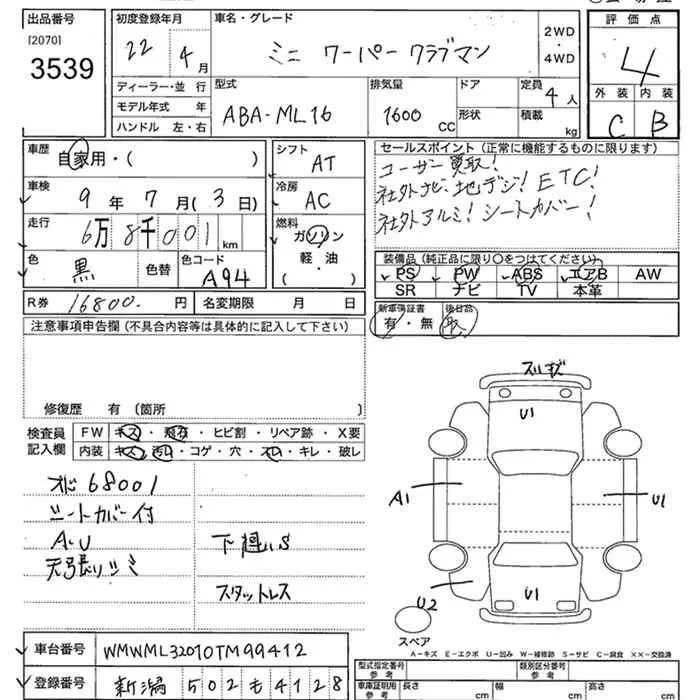 出品番号 初度登録年月 車名・グレード 評価点
[2070]
3539
22年4月 ミニ ワーパー クラブマン 2WD・4WD 4
ディーラー・並 行 型式 排気量 ドア 定員 4人 外装 内装
モデル年式 年 ABA-ML16 1600CC 形状 積載 kg C B
ハンドル 左・右
車歴 自家用・( ) シフト AT セールスポイント(正常に機能するものに限ります)
ユーザー買取!
車検 9年7月(3日) 冷房 AC 社外ナビ、地デジ! ETC!
走行 6万8千001km 燃料 ガソリン 社外アルミ! シートカバー!
軽・油
( )
色 黒 色替 色コード A94 装備品(純正品に限り〇をつけてください)
PS PW ABS エアB AW
SR ナビ TV 本革
R券 16800.円 名変期限 月 日 新車保証書 後日品
有・無
注意事項申告欄(不具合内容等は具体的に記入して下さい)
修復歴 有 〔箇所
検査員記入欄 FW キズ・飛石・ヒビ割・リペア跡・X要
内装 キズ・汚れ・コゲ・穴・スレ・キレ・破れ
スリキズ
U1
A1
U1
U1
U2
スペア
メーター68001
シートカバー付
A,U
天張りシミ
下廻りS
スタットレス
A-キズ E-エクボ U-凹み W-補修跡 S-サビ C-腐食 XX-交換済
車台番号 WMWML32010TM99412
登録番号 新潟 502 も 4128
型式指定番号 参考 類別区分番号 参考
車庫証明用 参考 長さ cm 幅 cm 高さ cm